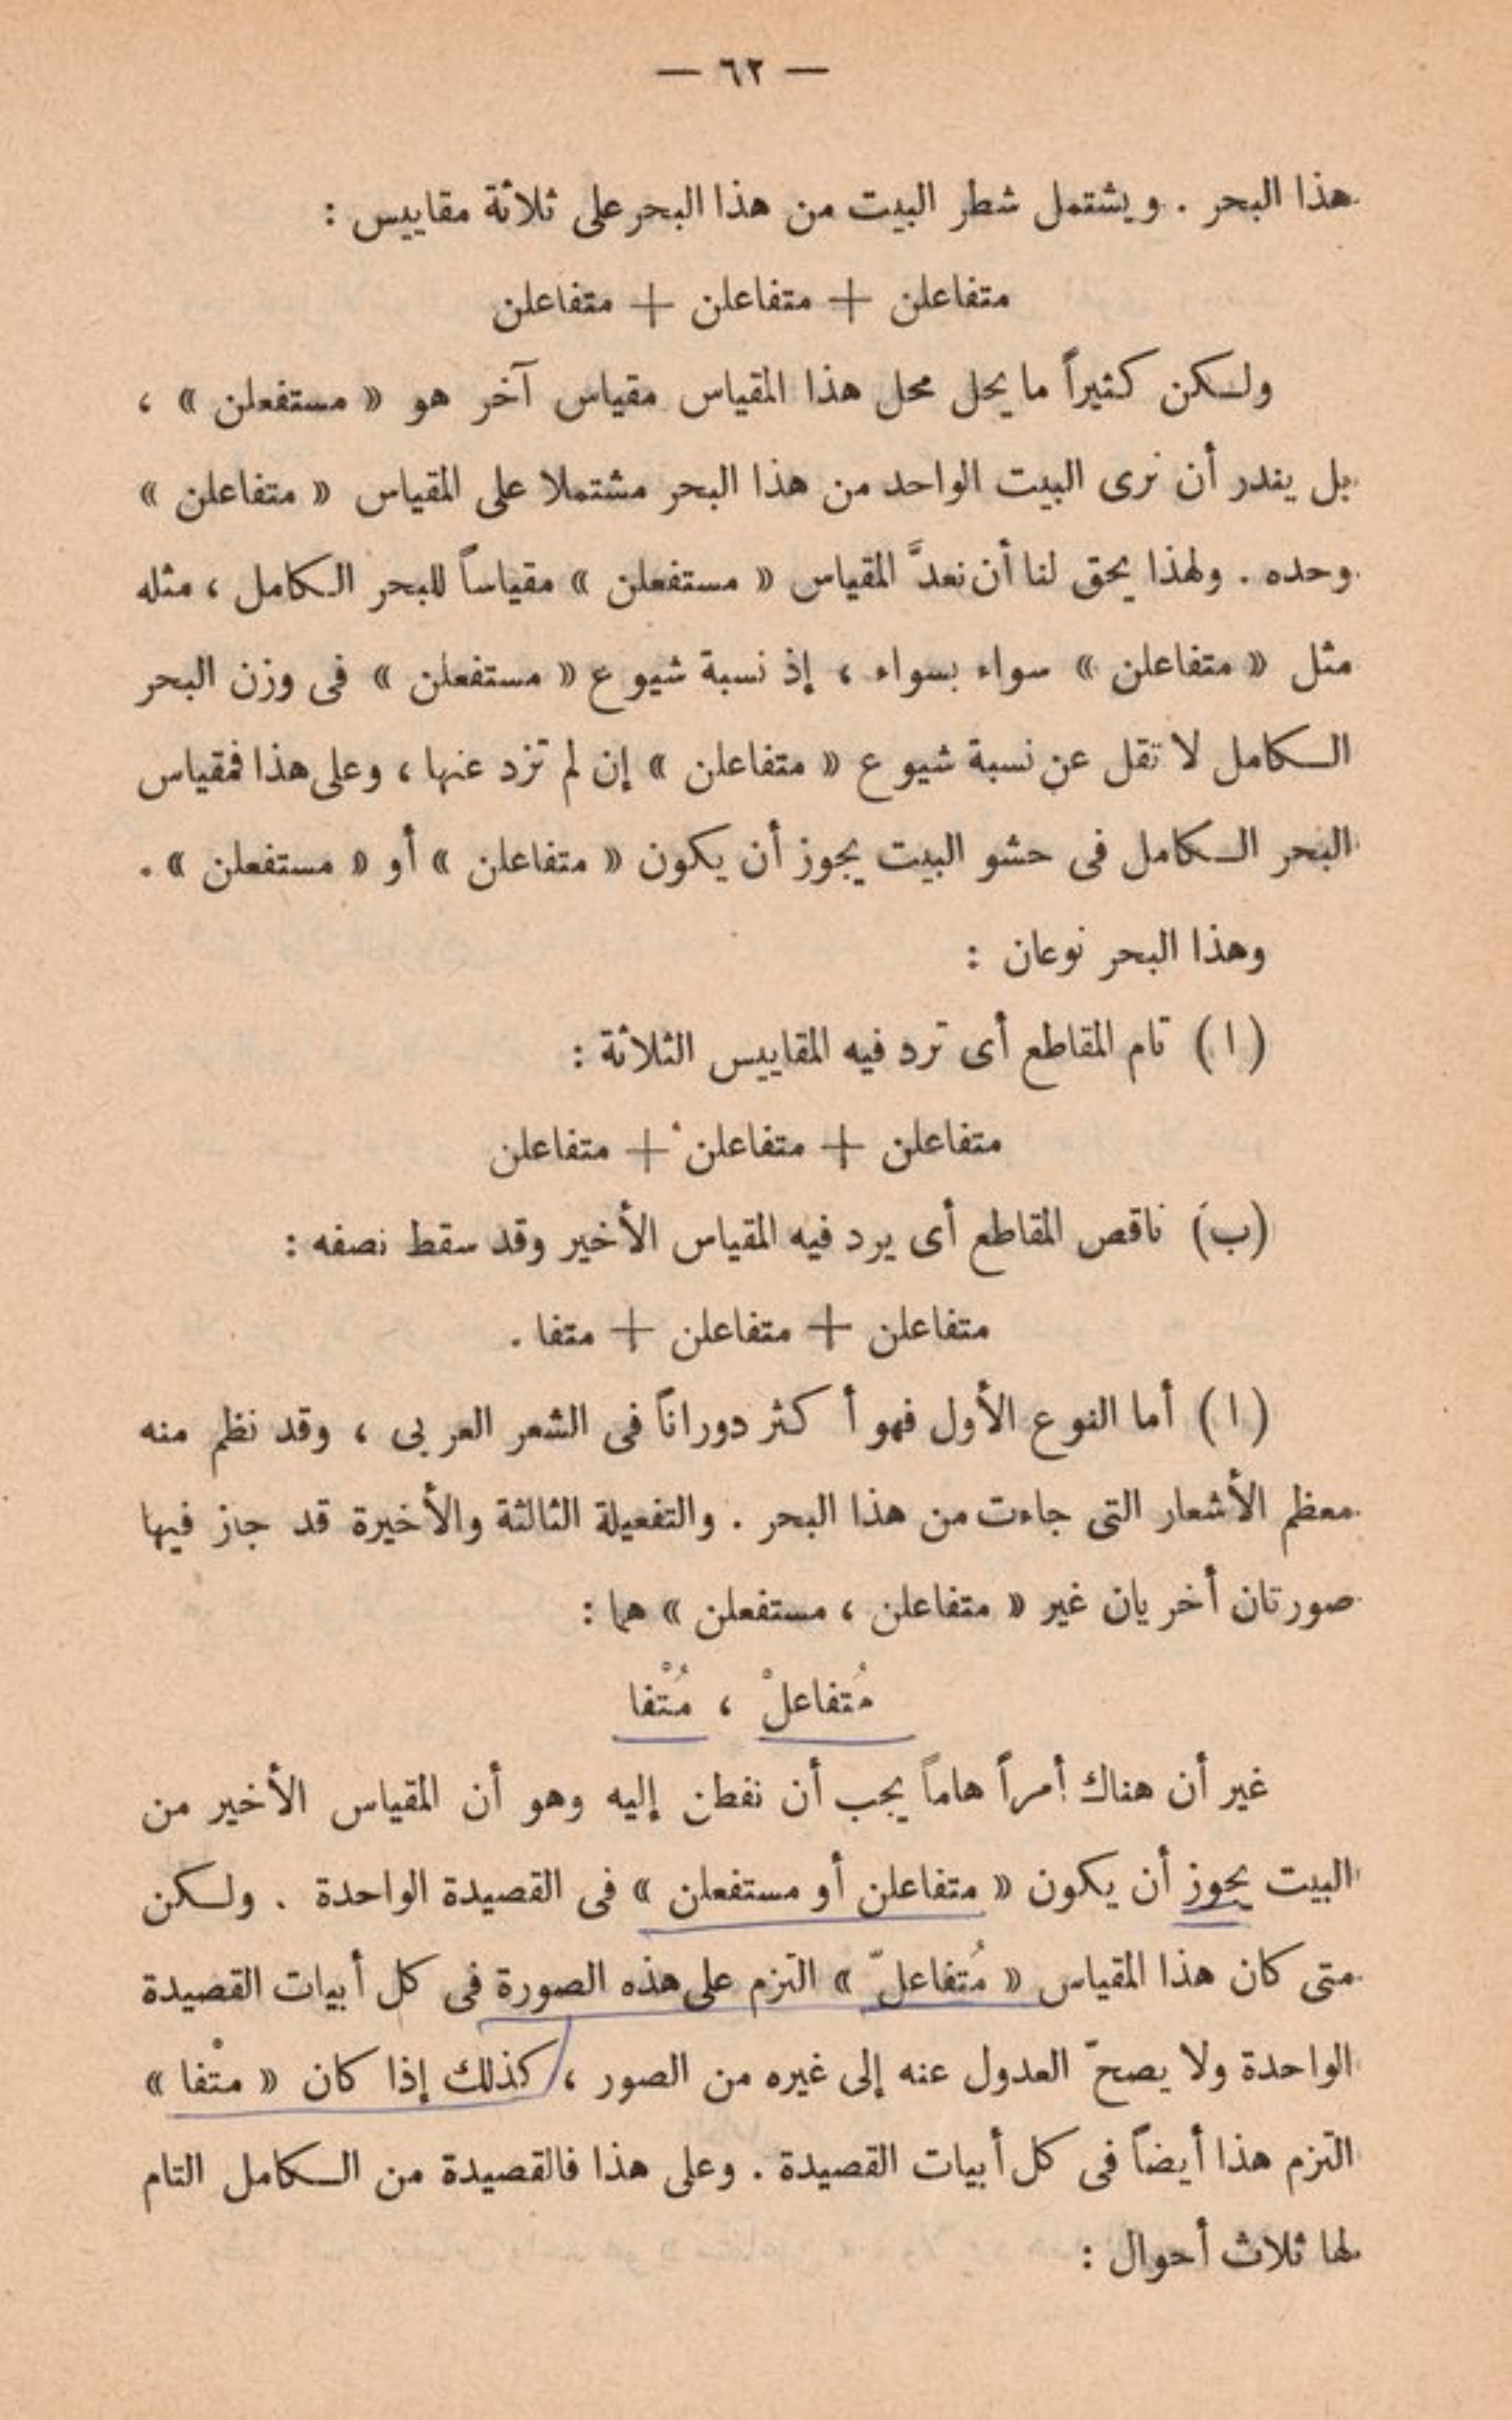 — ٦٢ —
هذا البحر . ويشتمل شطر البيت من هذا البحر على ثلاثة مقاييس :
متفاعلن + متفاعلن + متفاعلن
ولكن كثيراً ما يحل محل هذا المقياس مقياس آخر هو « مستفعلن » ،
بل يندر أن نرى البيت الواحد من هذا البحر مشتملا على المقياس « متفاعلن »
وحده . ولهذا يحق لنا أن نعدَّ المقياس « مستفعلن » مقياساً للبحر الكامل ، مثله
مثل « متفاعلن » سواء بسواء ، إذ نسبة شيوع « مستفعلن » فى وزن البحر
الكامل لا تقل عن نسبة شيوع « متفاعلن » إن لم تزد عنها ، وعلى هذا فمقياس
البحر الكامل فى حشو البيت يجوز أن يكون « متفاعلن » أو « مستفعلن » .
وهذا البحر نوعان :
( ا ) تام المقاطع أى ترد فيه المقاييس الثلاثة :
متفاعلن + متفاعلن + متفاعلن
(ب) ناقص المقاطع أى يرد فيه المقياس الأخير وقد سقط نصفه :
متفاعلن + متفاعلن + متفا .
( ا ) أما النوع الأول فهو أكثر دوراناً فى الشعر العربى ، وقد نظم منه
معظم الأشعار التى جاءت من هذا البحر . والتفعيلة الثالثة والأخيرة قد جاز فيها
صورتان أخريان غير « متفاعلن ، مستفعلن » هما :
مُتفاعلْ ، مُتْفا
غير أن هناك أمراً هاماً يجب أن نفطن إليه وهو أن المقياس الأخير من
البيت يجوز أن يكون « متفاعلن أو مستفعلن » فى القصيدة الواحدة . ولكن
متى كان هذا المقياس « مُتفاعلّ » التزم على هذه الصورة فى كل أبيات القصيدة
الواحدة ولا يصحّ العدول عنه إلى غيره من الصور ، كذلك إذا كان « متْفا »
التزم هذا أيضاً فى كل أبيات القصيدة . وعلى هذا فالقصيدة من الكامل التام
لها ثلاث أحوال :